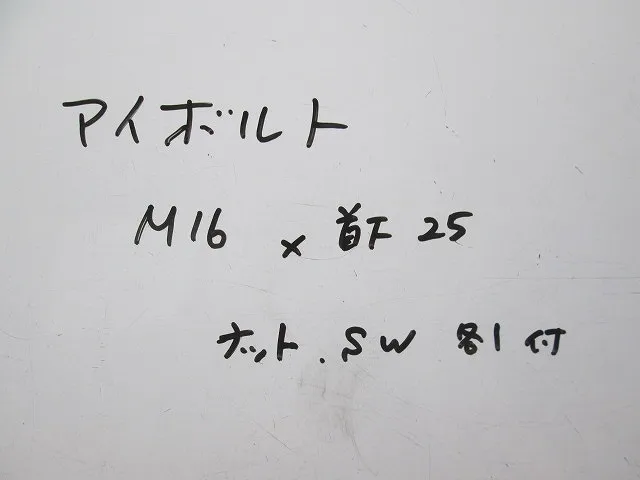 アイボルト
M16 × 首下 25
ナット.SW 各1付